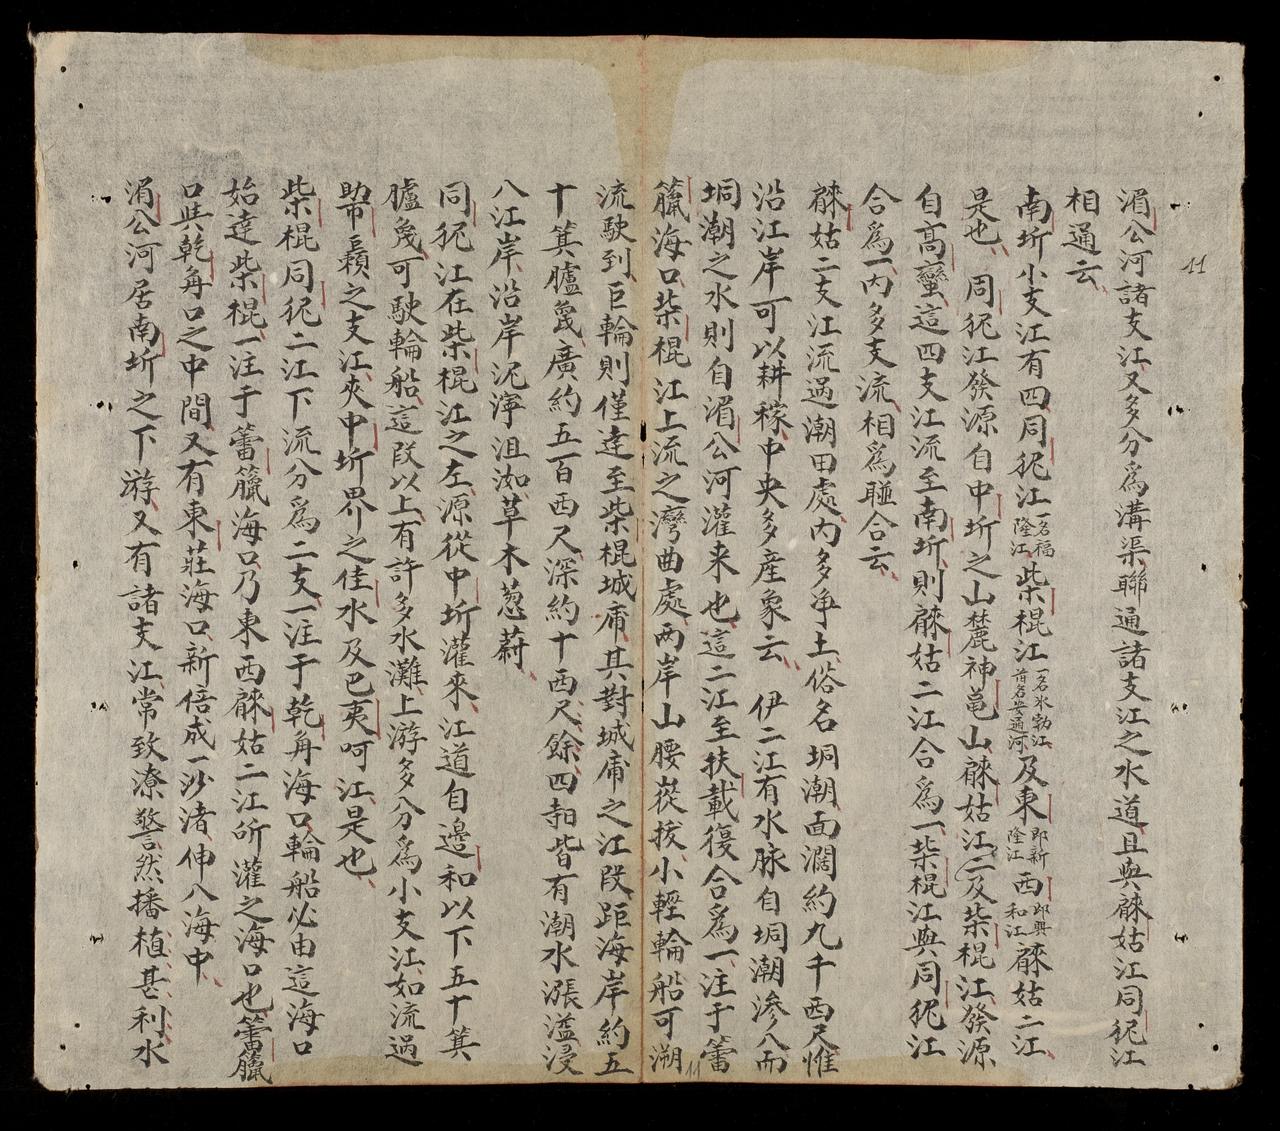 11
湄公河諸支江又多分爲溝渠聯通諸支江之水道且與𦝄姑江同狔江
相通云
南圻小支江有四同狔江一名福隆江柴棍江一名氷勃江首名安通河及東即新隆江西即興和江𦝄姑二江
是也 周狔江發源自中圻之山麓神黽山𦝄姑江二及柴棍江發源
自高蠻這四支江流至南圻則𦝄姑二江合爲一柴棍江與同狔江
合爲一内多支流相爲𥁞合云
𦝄姑二支江流過潮田處内多净土俗名垌潮面濶約九千西尺惟
沿江岸可以耕稼中央多産象云 伊二江有水脉自垌潮滲入而
垌潮之水則自湄公河灌来也這二江至扶載復合爲一注于蕾
𦡲海口柴棍江上流之灣曲處两岸山腰㠜拔小輕輪船可溯
流駛到巨輪則僅達至柴棍城庯其對城庯之江段距海岸約五
十箕臚㡬廣約五百西尺深約十西尺餘四𣇞皆有潮水漲溢浸
入江岸沿岸泥濘沮洳草木葱蔚
同狔江在柴棍江之左源從中圻灌來江道自邊和以下五十箕
臚㡬可駛輪船這段以上有許多水灘上游多分爲小支江如流過
助帝嶺之支江夾中圻界之佳水及巴夷呵江是也
柴棍同狔二江下流分爲二支一注于乾角海口輪船必由這海口
始達柴棍一注于蕾𦡲海口乃東西𦝄姑二江所灌之海口也蕾𦡲
口與乾角口之中間又有東莊海口新倍成一沙渚伸入海中
湄公河居南圻之下游又有諸支江常致潦警然播植甚利水
11